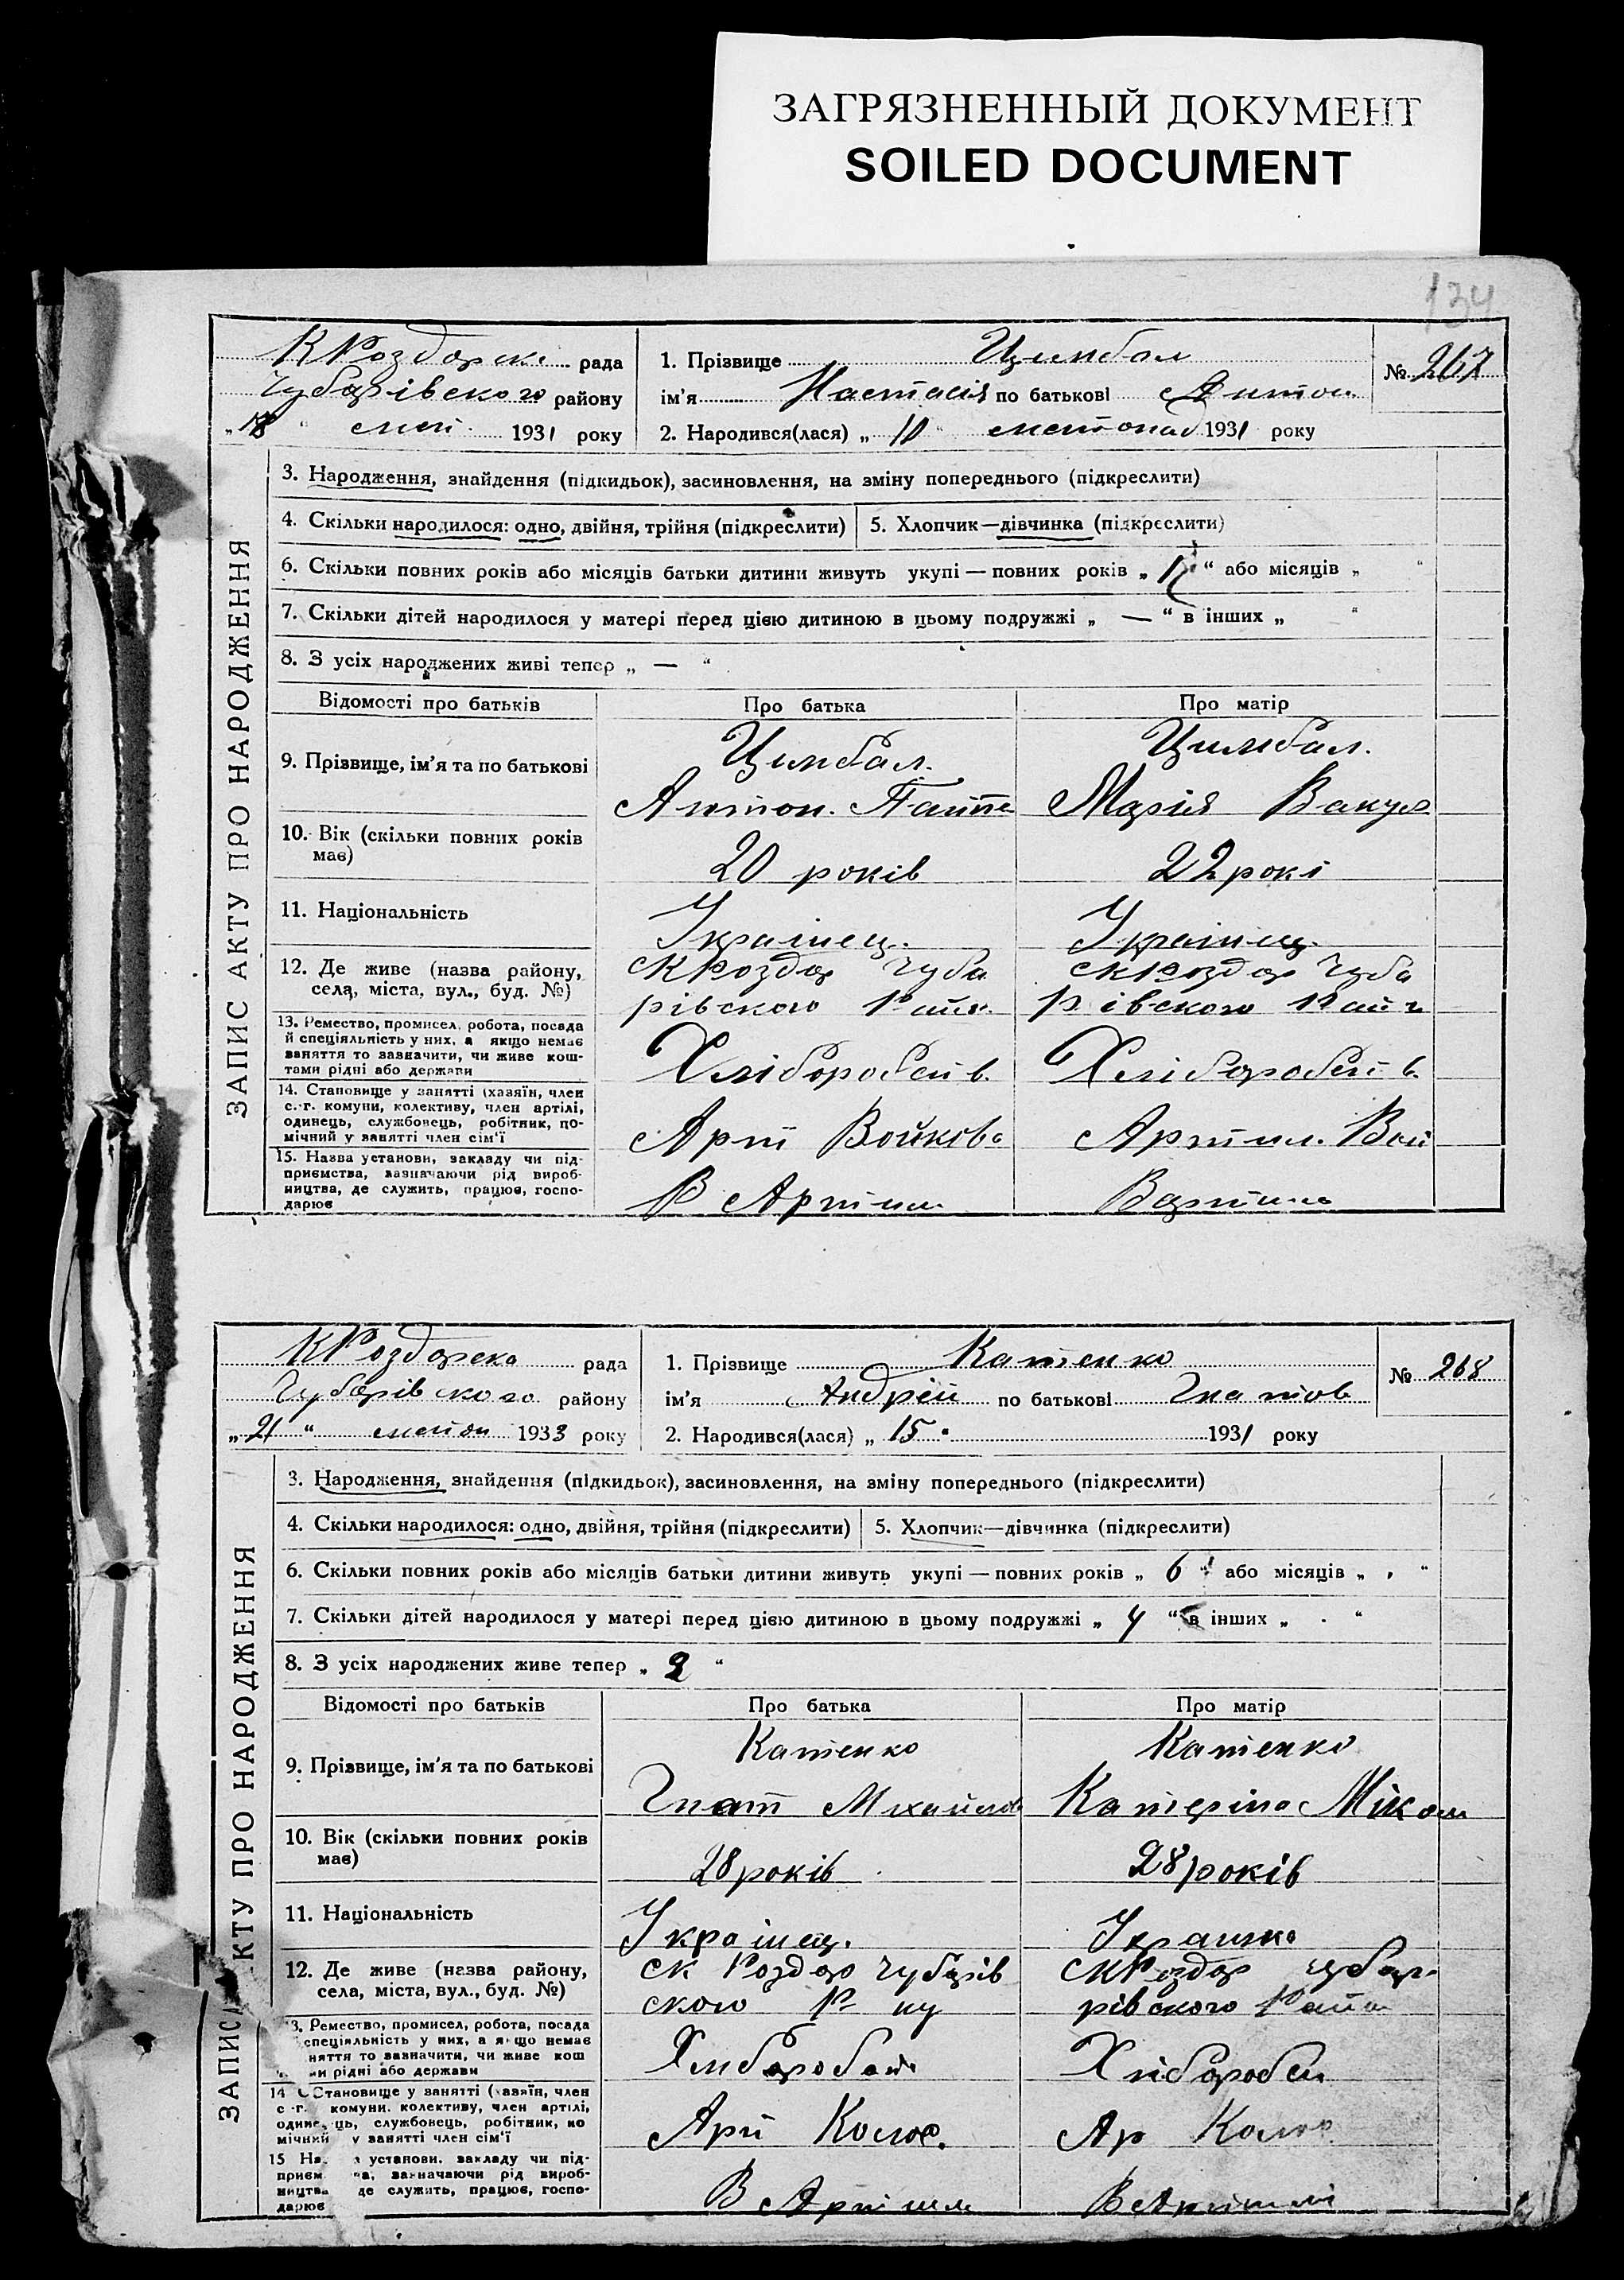 ЗАГРЯЗНЕННЫЙ ДОКУМЕНТ
SOILED DOCUMENT
134
ЗАПИС АКТУ ПРО НАРОДЖЕННЯ
КРоздорска рада
Чубарівского району
„18“ лист. 1931 року
1. Прізвище Цимбал
ім'я Настасія по батькові Антон.
2. Народився(лася) „10“ листопад 1931 року
№ 267
3. Народження, знайдення (підкидьок), засиновлення, на зміну попереднього (підкреслити)
4. Скільки народилося: одно, двійня, трійня (підкреслити)
5. Хлопчик—дівчинка (підкреслити)
6. Скільки повних років або місяців батьки дитини живуть укупі — повних років „ “ або місяців „ “
7. Скільки дітей народилося у матері перед цією дитиною в цьому подружжі „ — “ в інших „ “
8. З усіх народжених живі тепер „ — “
Відомості про батьків
Про батька
Про матір
9. Прізвище, ім'я та по батькові
Цимбал.
Антон.
Цимбал.
Марія Вакул
10. Вік (скільки повних років
має)
20 років
22 рокі
11. Національність
Українец.
Українец.
12. Де живе (назва району,
села, міста, вул., буд. №)
СКРоздор Чуба
рівского Райн.
СКРоздор Чуба
рівского Рай
13. Ремество, промисел, робота, посада
й спеціяльність у них, а якщо немає
заняття то зазначити, чи живе кош-
тами рідні або держави
Хлібороб
Хлібороб
14. Становище у занятті (хазяїн, член
с.-г. комуни, колективу, член артілі,
одинець, службовець, робітник, по-
мічний у занятті член сім'ї
Арт Войкова
Артил. Вой
15. Назва установи, закладу чи під-
приємства, зазначаючи рід вироб-
ництва, де служить, працює, госпо-
дарює
В Артили
Вартиль
ЗАПИС КТУ ПРО НАРОДЖЕННЯ
КРоздорска рада
Чубарівского району
„21“ листоп 1933 року
1. Прізвище Катенко
ім'я Андрій по батькові Гнатов
2. Народився(лася) „15 1931 року
№ 268
3. Народження, знайдення (підкидьок), засиновлення, на зміну попереднього (підкреслити)
4. Скільки народилося: одно, двійня, трійня (підкреслити)
5. Хлопчик—дівчинка (підкреслити)
6. Скільки повних років або місяців батьки дитини живуть укупі — повних років „ 6 “ або місяців „ “
7. Скільки дітей народилося у матері перед цією дитиною в цьому подружжі „ 4 “ в інших „ “
8. З усіх народжених живе тепер „ 2 “
Відомості про батьків
Про батька
Про матір
9. Прізвище, ім'я та по батькові
Катенко
Гнат Михайлов
Катенко
Катеріна Мікол
10. Вік (скільки повних років
має)
28 років
28 років
11. Національність
Українец.
Українка
12. Де живе (назва району,
села, міста, вул., буд. №)
СК Роздор Чубарів
ского Р-ну
СКРоздор Чубар
рівского Райн
13. Ремество, промисел, робота, посада
спеціяльність у них, а якщо немає
няття то зазначити, чи живе кош
ми рідні або держави
Хлібороб
Хлібороб
14 Становище у занятті (хазяїн, член
с-г. комуни, колективу, член артілі,
одинець, службовець, робітник, по
мічний у занятті член сім'ї
Арт Колос.
Ар Колос
15 На установи, закладу чи під-
приєм ва, зазначаючи рід вироб-
ництва де служить, працює, госпо-
дарює
В Артили
В Артилі